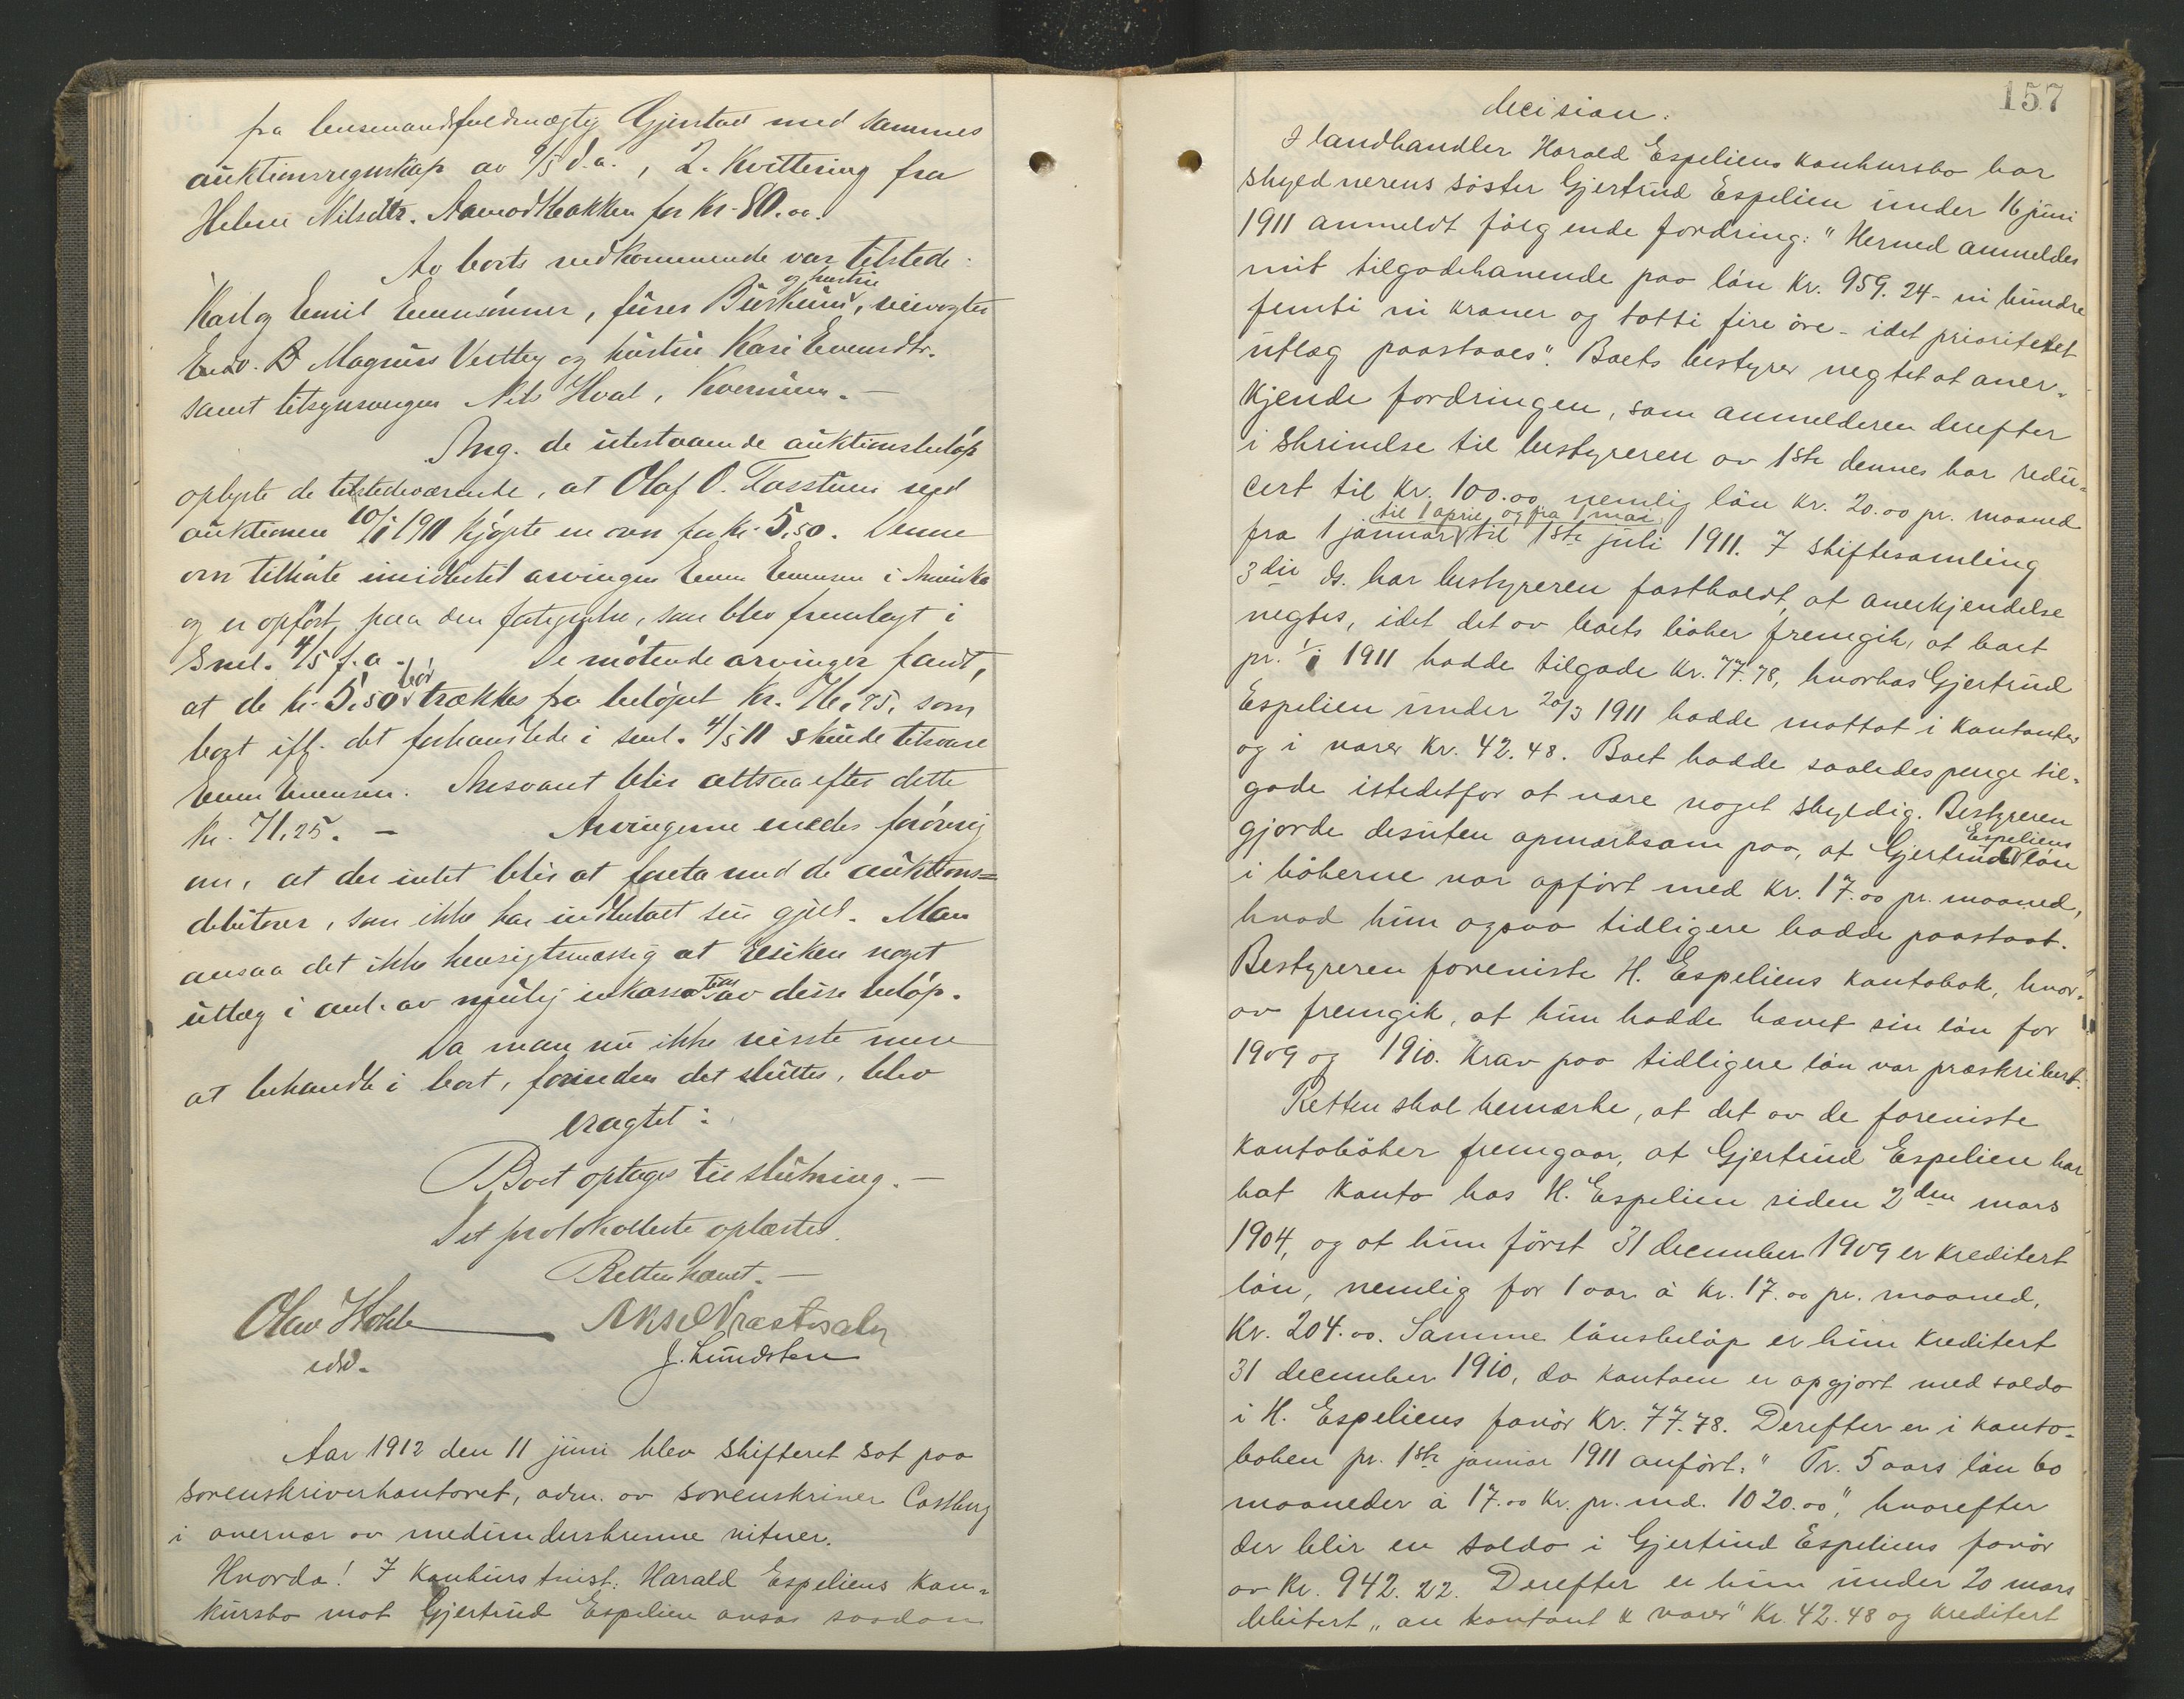 fra lensmandsfuldmægtig Gjerstad med sammes
auktionsregnskap av 9/5 d.a., 2. Kvittering fra
Helene Nilsdtr. Aamodtbakken for kr. 80.00.
Av boets vedkommende var tilstede:
og hustru
Karl og Emil Evensönner, furer Burkund, veivogter
Endv. B Magnus Vestby og hustru Kari Evensdtr.
samt tilsynsvergen Nils Hval, Kvernum. —
Ang. de utestaaende auktionsbelöp
oplyste de tilstedeværende, at Olaf O. Taasstuen ved
auktionen 10/1 1911 kjöpte en ovn for kr. 5.50. Denne
ovn tilhörte imidlertid arvingen Even Evensen i Amerika
og er opfört paa den fortegnelse, som blev fremlagt i
Sml. 4/5 f.a. De mötende arvinger fandt,
bör
at de kr. 5.50 trækkes fra belöpet kr. 76.75, som
boet ifl. det forhandlede i saml. 4/5 11 skulde tilsvare
Even Evensen. Ansvaret blir altsaa efter dette
kr. 71,25. — Arvingerne enedes forövrig
om, at der intet blir at foreta med de auktions=
debitorer, som ikke har indbetalt sin gjæld. Man
ansaa det ikke hensigtsmæssig at risikere noget
utlæg i anl. av mulig inkassation av disse belöp.
Da man nu ikke visste mere
at behandle i boet, forinden det sluttes, blev
eragtet:
Boet optages til slutning. —
Det protokollerte oplæstes.
Retten hævet. —
Olav Holte Aksel Næstisaly
edsv. J. Lundsten
Aar 1912 den 11 juni blev skifteret sat paa
sorenskriverkontoret, adm. av sorenskriver Castberg
i overvær av medunderskrevne vitner.
Hvorda! I konkurstvist: Harald Espeliens kon=
kursbo mot Gjertrud Espelien avsas saadan
157
decision:
I landhandler Harald Espeliens konkursbo har
skyldnerens söster Gjertrud Espelien under 16 juni
1911 anmeldt fölgende fordring: "Herved anmeldes
mit tilgodehavende paa lön kr. 959.24 - ni hundre
femti ni kroner og totti fire öre - idet prioritetet
utlæg paastaaes". Boets bestyrer negtet at aner=
kjende fordringen, som anmelderen derefter
i skrivelse til bestyreren av 1ste dennes har redu=
cert til kr. 100.00 nemlig lön kr. 20.00 pr. maaned
til 1 april og fra 1 mai
fra 1 januar til 1ste juli 1911. I skiftesamling
3die ds. har bestyreren fastholdt, at anerkjendelse
negtes, idet det av boets böker fremgik, at boet
pr. 1/1 1911 hadde tilgode kr. 77.78, hvorhos Gjertrud
Espelien under 20/3 1911 hadde mottat i kontanter
og i varer kr. 42.48. Boet hadde saaledes penge til=
gode istedetfor at være noget skyldig. Bestyreren
gjorde desuten opmerksom paa, at Gjertrud Espeliens lön
i bökerne var opfört med kr. 17.00 pr. maaned,
hvad hun ogsaa tidligere hadde paastaat.
Bestyreren foreviste H. Espeliens kontobok, hvor=
av fremgik, at hun hadde hævet sin lön for
1909 og 1910. Krav paa tidligere lön var præskribert.
Retten skal bemærke, at det av de foreviste
kontoböker fremgaar, at Gjertrud Espelien har
hat konto hos H. Espelien siden 2den mars
1904, og at hun först 31 december 1909 er kreditert
lön, nemlig for 1 aar à kr. 17.00 pr. maaned,
kr. 204.00. Samme lönsbelöp er hun kreditert
31 december 1910, da kontoen er opgjort med saldo
i H. Espeliens favör kr. 77.78. Derefter er i konto=
boken pr. 1ste januar 1911 anfört: "Pr. 5 aars lön 60
maaneder à 17.00 kr. pr. md. 1020.00", hvorefter
der blir en saldo i Gjertrud Espeliens favör
av kr. 942.22. Derefter er hun under 20 mars
debitert "an kontant & varer" kr. 42.48 og kreditert